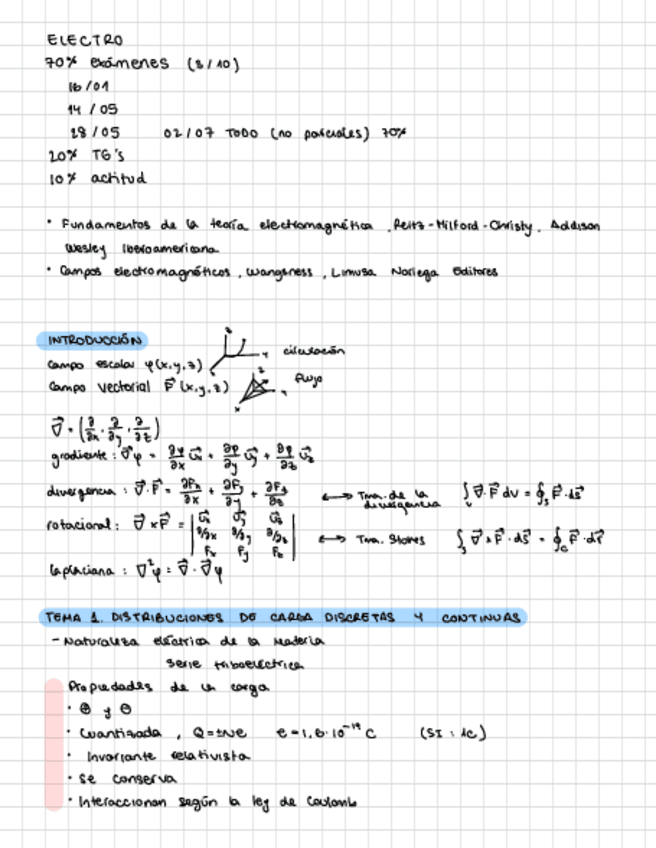 ELECTRO
70% exámenes (3/10)
16/01
14/05
28/05 02/07 TODO (no parciales) 70%
20% TG's
10% actitud
· Fundamentos de la teoría electromagnética, Reitz-Milford-Christy, Addison
Wesley Iberoamericana
· Campos electromagnéticos, Wangsness, Limusa Noriega Editores
INTRODUCCIÓN
z y circulación
campo escalar φ(x,y,z)
campo vectorial F⃗(x,y,z) flujo
∇⃗ = (∂/∂x, ∂/∂y, ∂/∂z)
gradiente: ∇⃗φ = ∂φ/∂x u⃗x + ∂φ/∂y u⃗y + ∂φ/∂z u⃗z
divergencia: ∇⃗·F⃗ = ∂Fx/∂x + ∂Fy/∂y + ∂Fz/∂z ⟷ Tma. de la divergencia ∫v ∇⃗·F⃗ dv = ∮s F⃗·ds⃗
rotacional: ∇⃗×F⃗ = | u⃗x u⃗y u⃗z |
| ∂/∂x ∂/∂y ∂/∂z | ⟷ Tma. Stokes ∫s ∇⃗×F⃗·ds⃗ = ∮c F⃗·dr⃗
| Fx Fy Fz |
laplaciana: ∇²φ = ∇⃗·∇⃗φ
TEMA 1. DISTRIBUCIONES DE CARGA DISCRETAS Y CONTINUAS
- Naturaleza eléctrica de la materia
serie triboeléctrica
Propiedades de la carga
· ⊕ y ⊖
· Cuantizada, Q=±Ne e=1,6·10⁻¹⁹ C (SI: 1C)
· Invariante relativista
· Se conserva
· Interaccionan según la ley de Coulomb